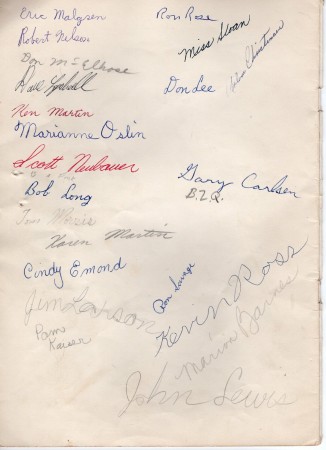 Eric Malgsen
Ron Ross
Robert Nelson
Miss Sloan
Don McElhose
Christensen
Don Lee
Ken Martin
Marianne Oslin
Scott Neubauer
Gary Carlsen
Bob Long
B.Z.Q.
Tom
Karen Martin
Cindy Emond
Ron Savage
Jim Larson
Kevin Ross
Pam Kaiser
Marion Barnes
John Lewis